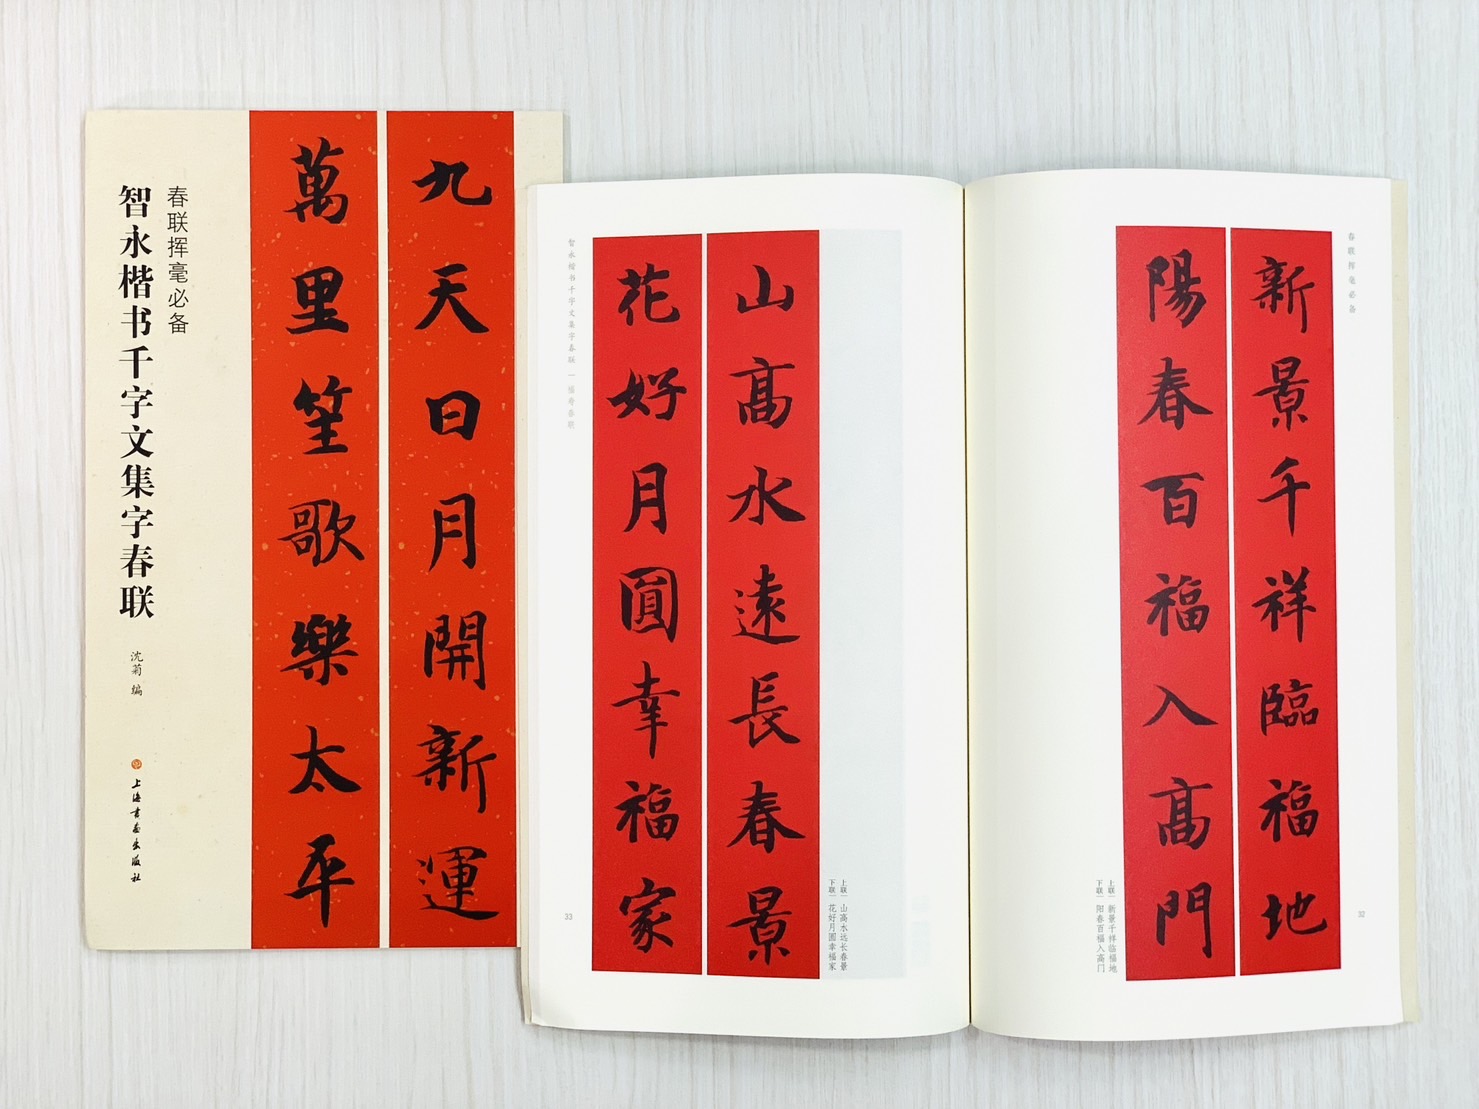 九天日月開新運
萬里笙歌樂太平
春联挥毫必备
智永楷书千字文集字春联
沈菊 编
上海书画出版社
春联挥毫必备
新景千祥臨福地
陽春百福入高門
上联 新景千祥临福地
下联 阳春百福入高门
32
山高水遠長春景
花好月圓幸福家
上联 山高水远长春景
下联 花好月圆幸福家
智永楷书千字文集字春联 — 福寿春联
33